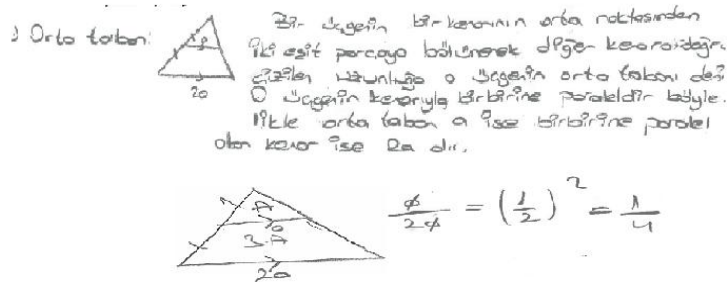 Orta taban: Bir üçgenin bir kenarının orta noktasından
iki eşit parçaya bölünerek diğer kenara doğru
çizilen uzunluğa o üçgenin orta tabanı den
O üçgenin kenarıyla birbirine paraleldir böyle.
likle orta taban a ise birbirine paralel
olan kenar ise 2a dır.
a
2a
A
a
3A
2a
a/2a = (1/2)^2 = 1/4